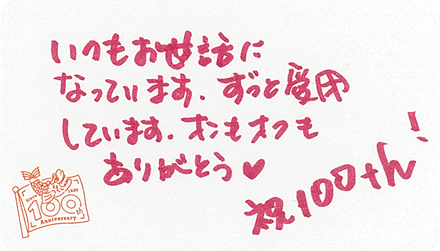 いつもお世話に
なっています。ずっと愛用
しています。オンもオフも
ありがとう♥
祝100th!
100th
Anniversary